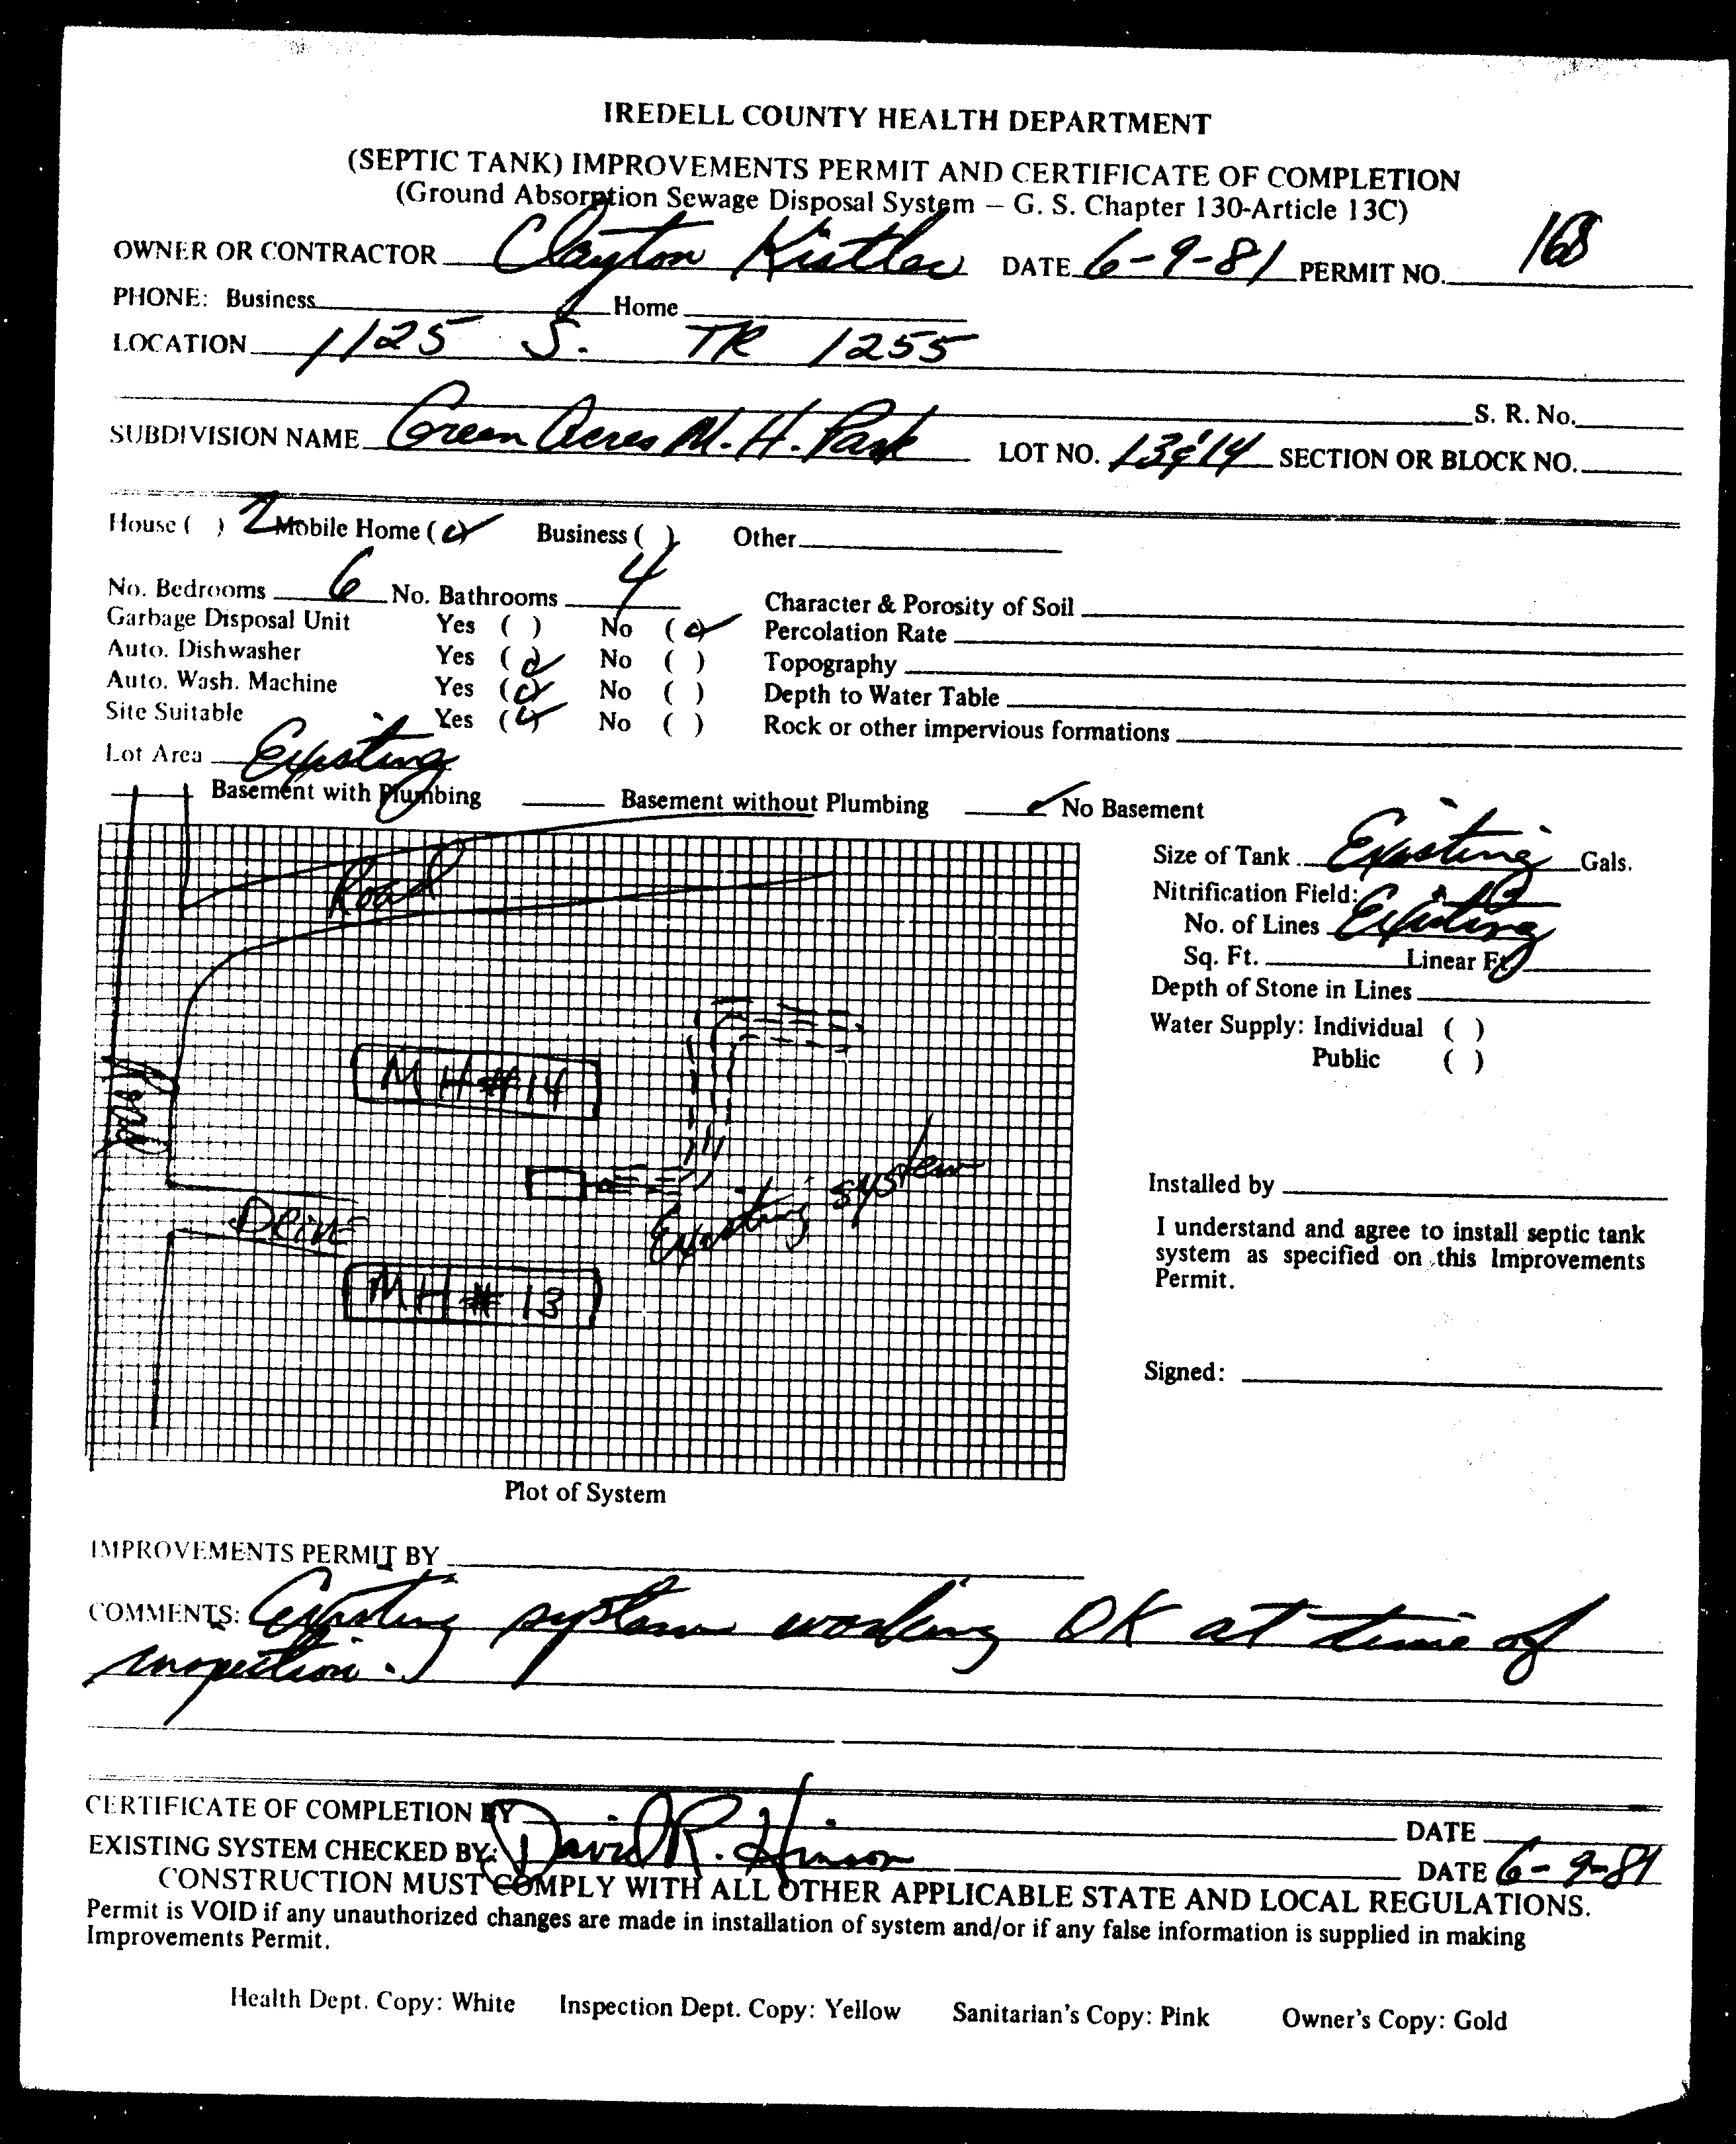 IREDELL COUNTY HEALTH DEPARTMENT
(SEPTIC TANK) IMPROVEMENTS PERMIT AND CERTIFICATE OF COMPLETION
(Ground Absorption Sewage Disposal System – G. S. Chapter 130-Article 13C)
OWNER OR CONTRACTOR Clayton Kistler DATE 6-9-81 PERMIT NO. 168
PHONE: Business Home
LOCATION 1125 S. TR 1255
S. R. No.
SUBDIVISION NAME Green Acres M. H. Park LOT NO. 13 & 14 SECTION OR BLOCK NO.
House ( ) 2 Mobile Home (✓) Business ( ) Other
No. Bedrooms 6 No. Bathrooms 4 Character & Porosity of Soil
Garbage Disposal Unit Yes ( ) No (✓) Percolation Rate
Auto. Dishwasher Yes (✓) No ( ) Topography
Auto. Wash. Machine Yes (✓) No ( ) Depth to Water Table
Site Suitable Yes (✓) No ( ) Rock or other impervious formations
Lot Area Existing
Basement with Plumbing Basement without Plumbing ✓ No Basement
Size of Tank Existing Gals.
Nitrification Field:
No. of Lines Existing
Sq. Ft. Linear Ft.
Depth of Stone in Lines
Water Supply: Individual ( )
Public ( )
Road
MH #14
Road
Existing system
Drive
MH # 13
Installed by
I understand and agree to install septic tank
system as specified on this Improvements
Permit.
Signed:
Plot of System
IMPROVEMENTS PERMIT BY
COMMENTS: Existing system working OK at time of
inspection.
CERTIFICATE OF COMPLETION BY DATE
EXISTING SYSTEM CHECKED BY: David R. Hinson DATE 6-9-81
CONSTRUCTION MUST COMPLY WITH ALL OTHER APPLICABLE STATE AND LOCAL REGULATIONS.
Permit is VOID if any unauthorized changes are made in installation of system and/or if any false information is supplied in making
Improvements Permit.
Health Dept. Copy: White Inspection Dept. Copy: Yellow Sanitarian's Copy: Pink Owner's Copy: Gold